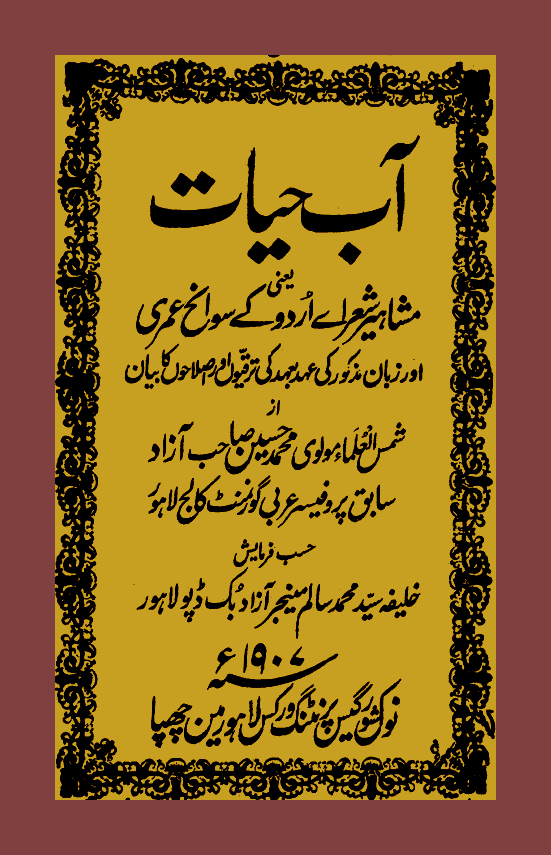 آب حیات
یعنی
مشاہیر شعراے اُردو کے سوانح عمری
اور زبان مذکور کی عہد بعہد کی ترقیوں اور اصلاحوں کا بیان
از
شمس العُلماء مولوی محمد حسین صاحب آزاد
سابق پروفیسر عربی گورنمنٹ کالج لاہور
حسب فرمایش
خلیفہ سیّد محمد سالم مینجر آزاد بُک ڈپو لاہور
سنہ ۱۹۰۷ء
نولکشور گیس پرنٹنگ ورکس لاہور مین چھپا